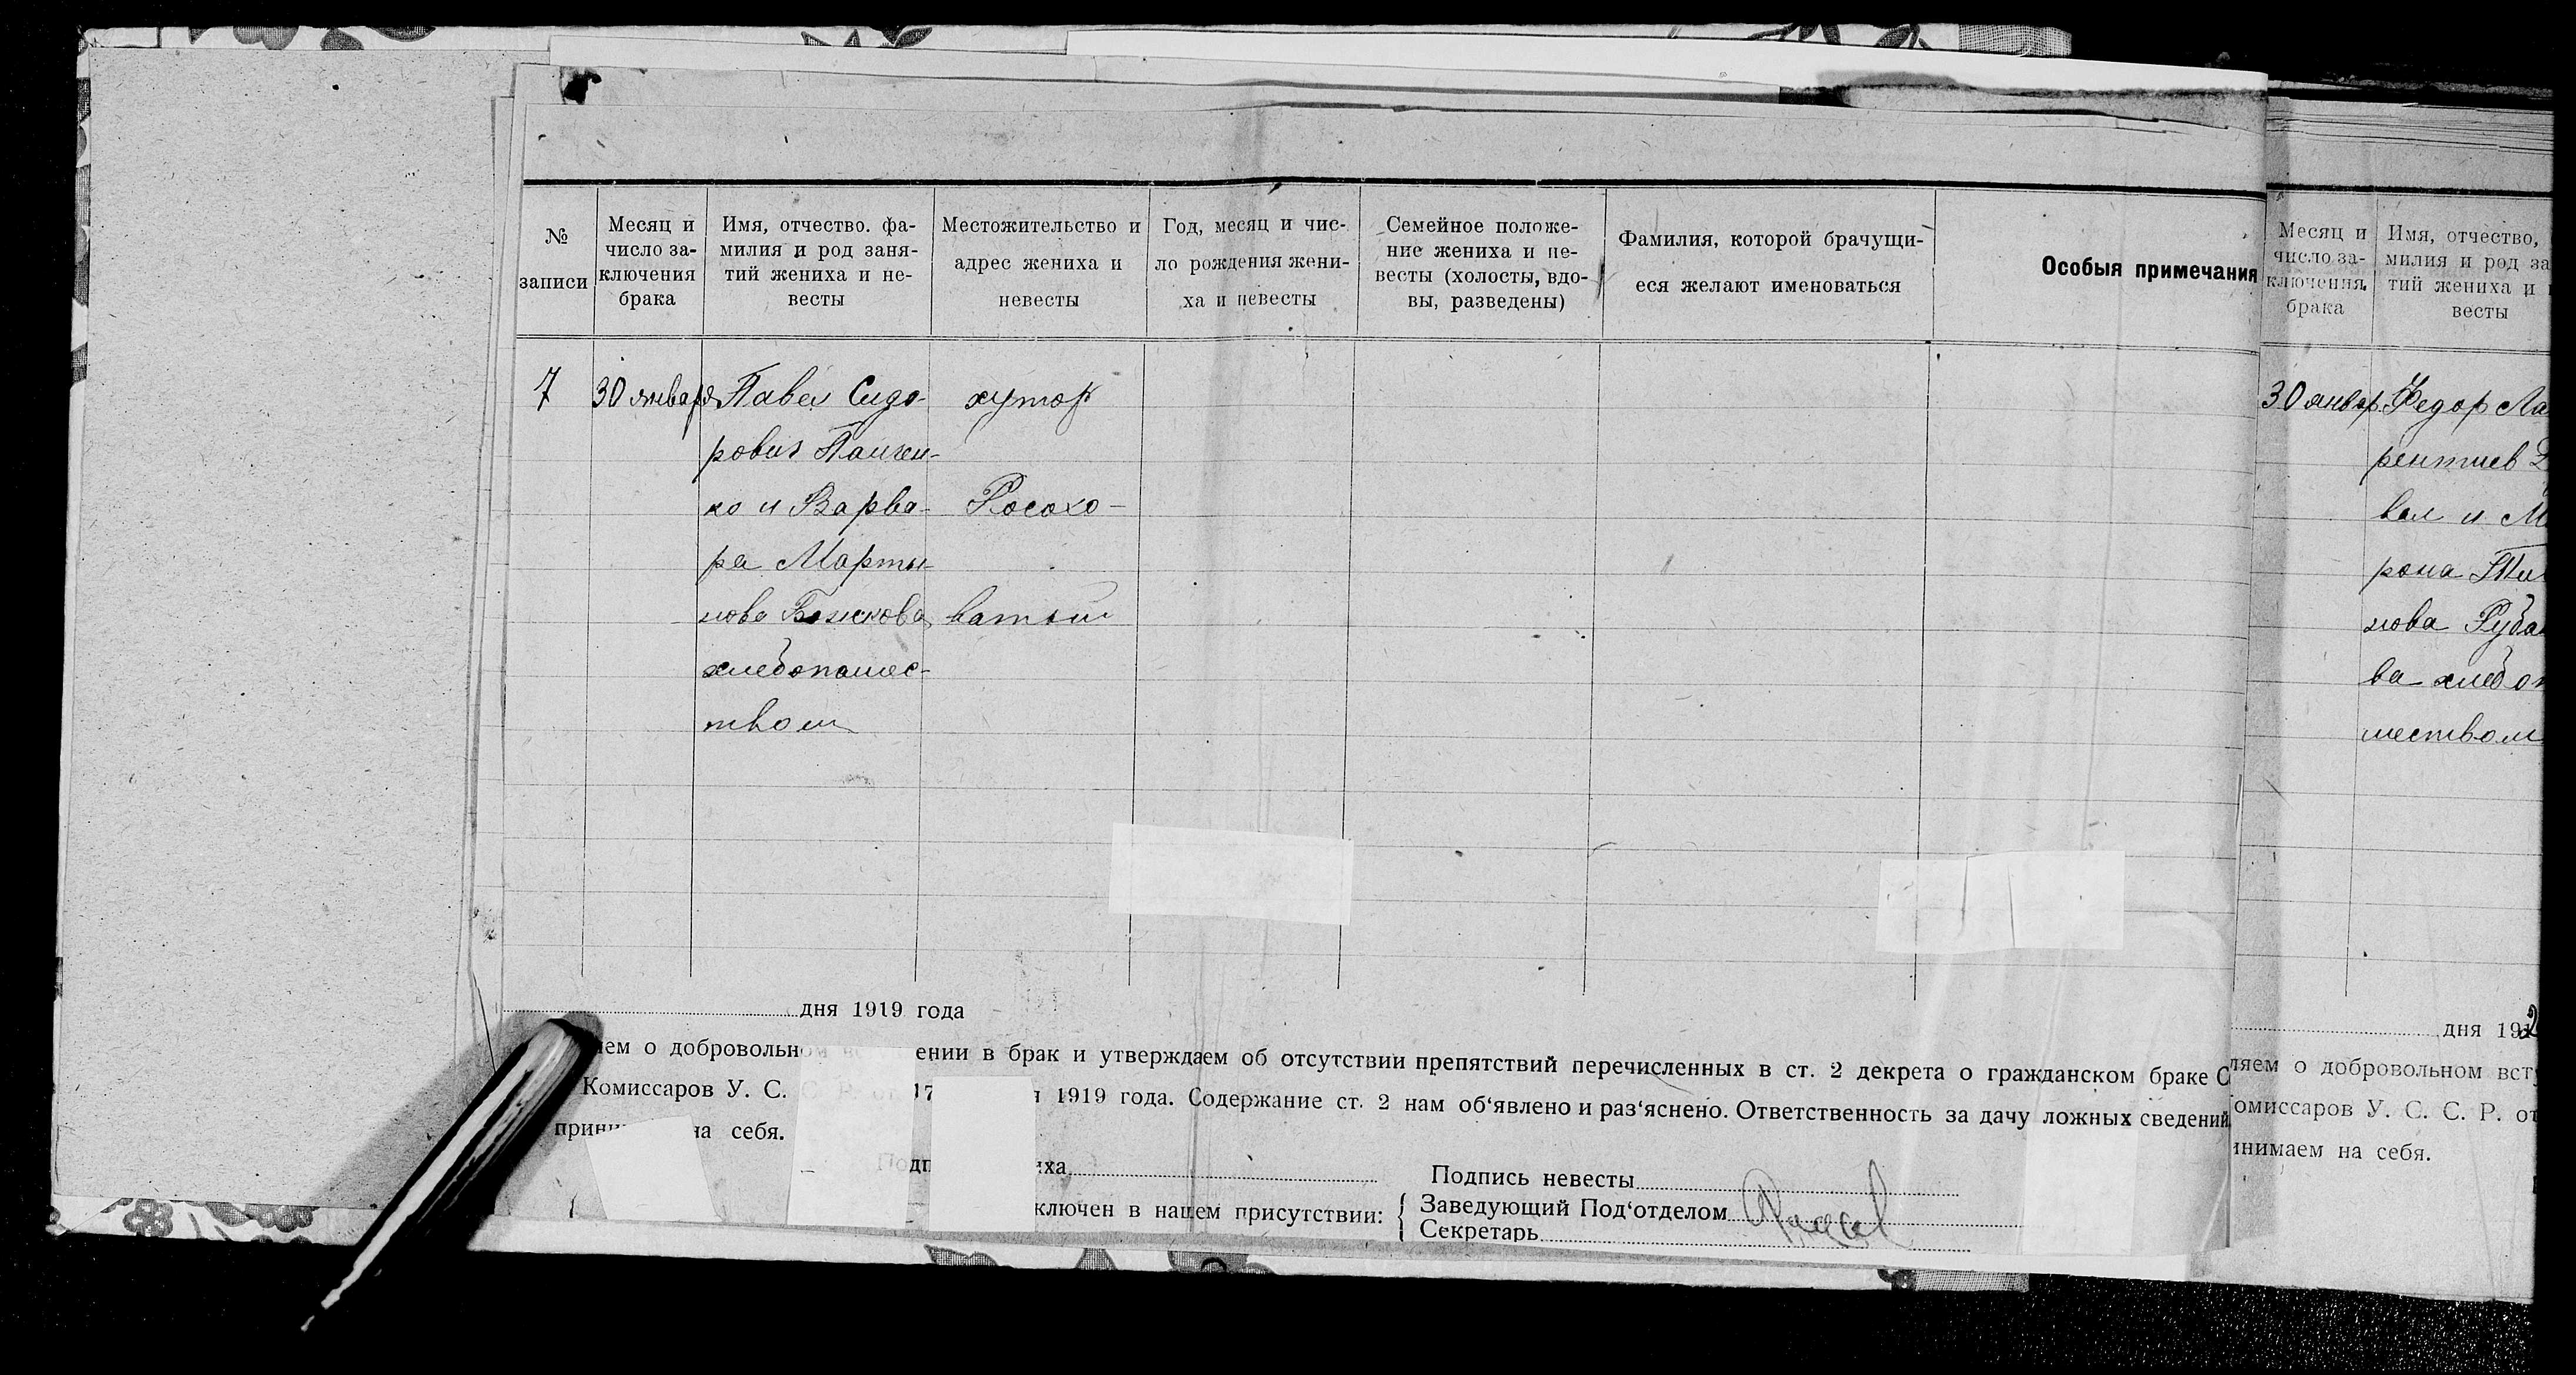 № записи
Месяц и число за-
ключения
брака
Имя, отчество. фа-
милия и род заня-
тий жениха и не-
весты
Местожительство и
адрес жениха и
невесты
Год, месяц и чис-
ло рождения жени-
ха и невесты
Семейное положе-
ние жениха и не-
весты (холосты, вдо-
вы, разведены)
Фамилия, которой брачущи-
еся желают именоваться
Особыя примечания
7
30 января
Павел Сидо-
рович Панчен-
ко и Варва-
ра Марты-
нова
хлебопашес-
твом
хутор
Росохо-
ватый
дня 1919 года
ем о добровольн ении в брак и утверждаем об отсутствии препятствий перечисленных в ст. 2 декрета о гражданском браке С
Комиссаров У. С. С. Р. от 17 я 1919 года. Содержание ст. 2 нам об‘явлено и раз‘яснено. Ответственность за дачу ложных сведений
прини на себя.
Подп иха
Подпись невесты
ключен в нашем присутствии:
Заведующий Под‘отделом
Секретарь
Месяц и
число за-
ключения
брака
Имя, отчество,
милия и род за
тий жениха и
весты
30 январ
Федор Ла
рентиев
вал и М
рона Ти
нова Руба
ва хлебоп
шеством
дня 192
ляем о добровольном вст
омиссаров У. С. С. Р. от
инимаем на себя.